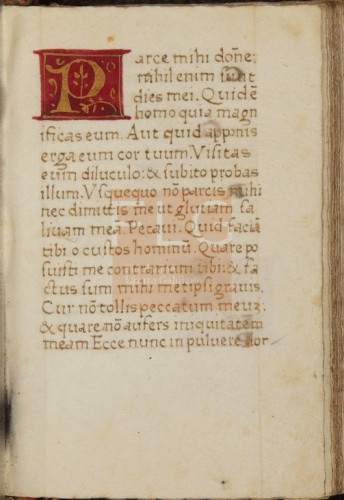 Parce mihi dõne;
nihil enim sunt
dies mei. Quid ẽ
homo quia magn
ificas eum. Aut quid apponis
erga eum cor tuum. Visitas
eum diluculo: & subito probas
illum. Vsquequo nõ parcis mihi
nec dimittis me ut glutiam sa
liuam meã. Pecaui. Quid faciã
tibi o custos hominũ. Quare po
suisti me contrarium tibi: & fa
ctus sum mihi metipsi grauis.
Cur nõ tollis peccatum meuz:
& quare nõ aufers iniquitatem
meam Ecce nunc in puluere dor